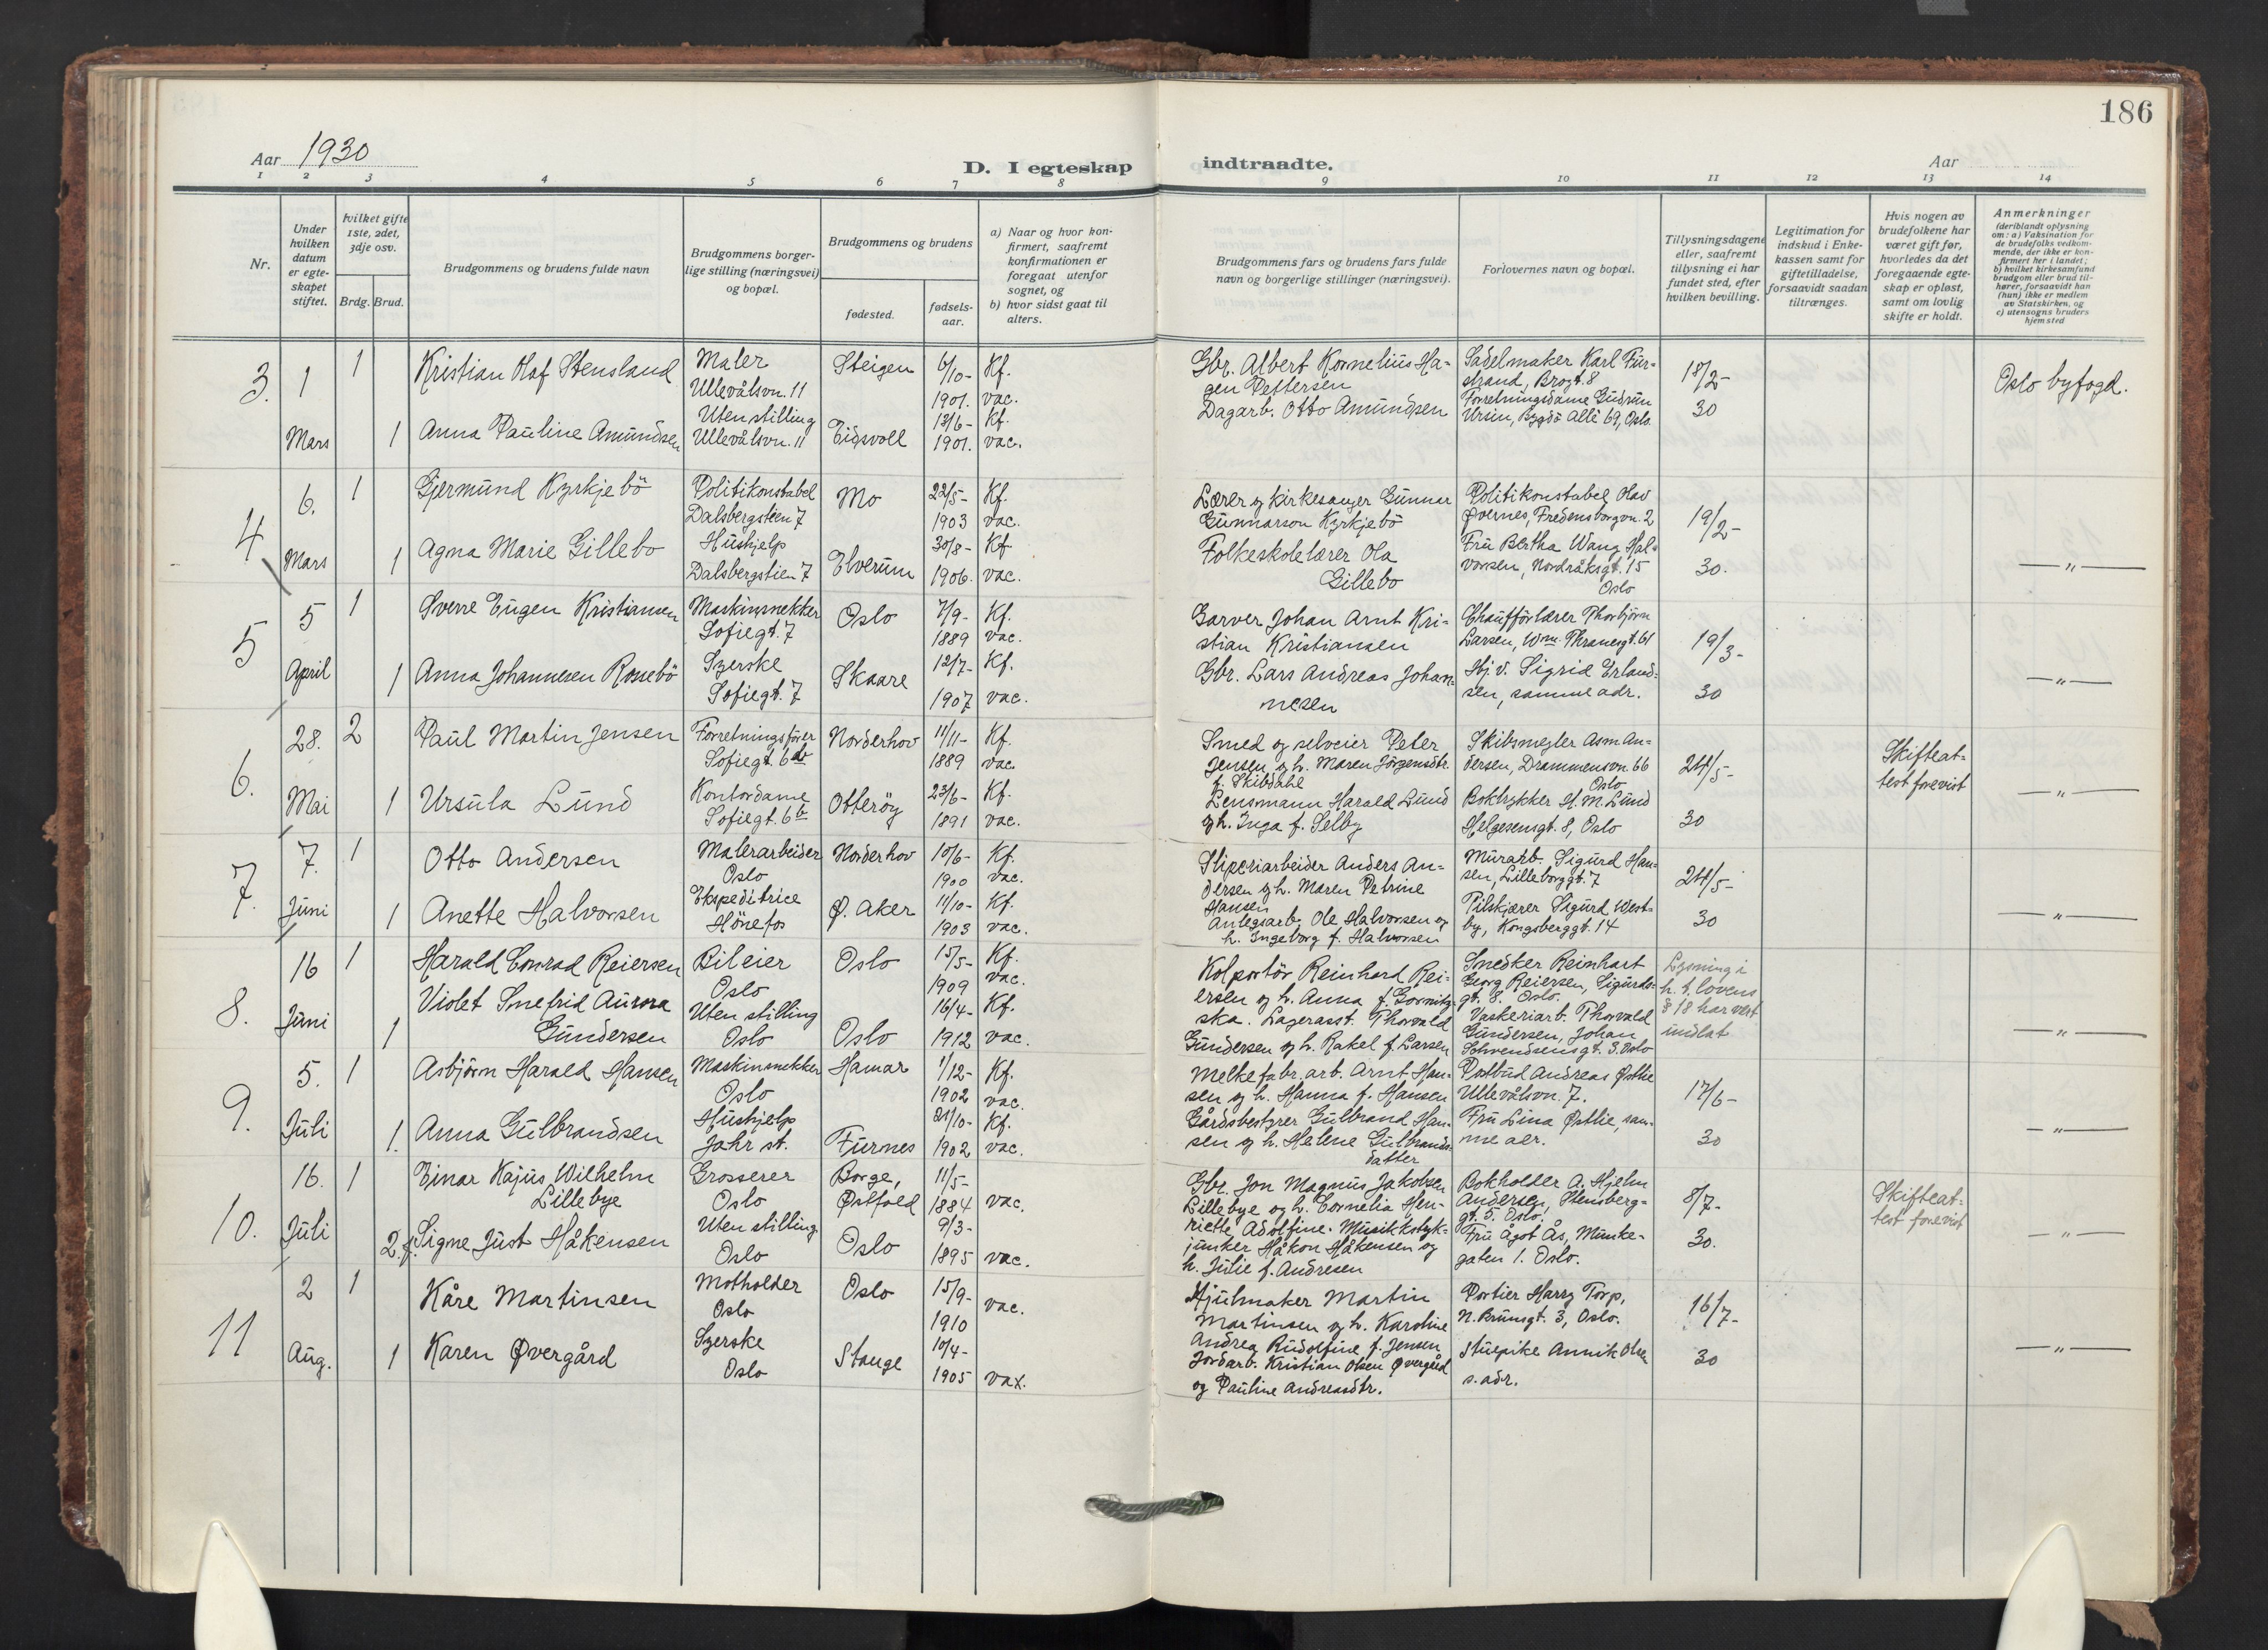 186
Aar 1930
D. I egteskap indtraadte.
Aar
1 2 3 4 5 6 7 8 9 10 11 12 13 14
Nr.
Under hvilken datum er egteskapet stiftet.
hvilket gifte 1ste, 2det, 3dje osv.
Brdg. Brud.
Brudgommens og brudens fulde navn
Brudgommens borgerlige stilling (næringsvei) og bopæl.
Brudgommens og brudens
fødested.
fødselsaar.
a) Naar og hvor konfirmert, saafremt konfirmationen er foregaat utenfor sognet, og
b) hvor sidst gaat til alters.
Brudgommens fars og brudens fars fulde navn og borgerlige stillinger (næringsvei).
Forlovernes navn og bopæl.
Tillysningsdagene eller, saafremt tillysning ei har fundet sted, efter hvilken bevilling.
Legitimation for indskud i Enkekassen samt for giftetilladelse, forsaavidt saadan tiltrænges.
Hvis nogen av brudefolkene har været gift før, hvorledes da det foregaaende egteskap er opløst, samt om lovlig skifte er holdt.
Anmerkninger
(deriblandt oplysning om: a) Vaksination for de brudefolks vedkommende, der ikke er konfirmert her i landet; b) hvilket kirkesamfund brudgom eller brud tilhører, forsaavidt han (hun) ikke er medlem av Statskirken, og c) utensogns bruders hjemsted
3. 1 Mars
1 Kristian Olaf Stensland
Maler
Ullevålsvn. 11
Steigen
6/10-
1901.
Kf.
vac.
1 Anna Pauline Amundsen
Uten stilling
Ullevålsvn. 11
Eidsvoll
13/6-
1901.
Kf.
vac.
Gbr. Albert Kornelius Ha-
gen Pettersen
Dagarb. Otto Amundsen
Sadelmaker Karl Fur-
strand, Brogt. 8
Forretningsdame Gudrun
Ursin, Bygdö Allé 69, Oslo.
18/2-
30
Oslo byfogd.
4 6. Mars
1 Gjermund Kyrkjebö
Politikonstabel
Dalsbergstien 7
Mo
22/5-
1903
Kf.
vac.
1 Agna Marie Gillebo
Hushjelp
Dalsbergstien 7
Elverum
30/8-
1906.
Kf.
vac.
Lærer og kirkesanger Gunnar
Gunnarson Kyrkjebö
Folkeskolelærer Ola
Gillebo
Politikonstabel Olav
Øvernes, Fredensborgvn. 2
Fru Bertha Wang Hal-
vorsen, Nordråksgt. 15
Oslo
19/2-
30.
— " —
5 5 April
1 Sverre Eugen Kristiansen
Maskinsnekker
Sofiegt. 7
Oslo
7/9-
1889
Kf.
vac.
1 Anna Johannesen Rossebö
Syerske
Sofiegt. 7
Skaare
12/7-
1907
Kf.
vac.
Garver Johan Arnt Kri-
stian Kristiansen
Gbr. Lars Andreas Johan-
nesen
Chaufförlærer Thorbjørn
Larsen, Wm. Thranesgt. 61
Hj. v. Sigrid Erland-
sen, samme adr.
19/3-
30
— " —
6. 28. Mai
2 Paul Martin Jensen
Forretningsfører
Sofiegt. 6 b
Norderhov
11/11-
1889
Kf.
vac.
1 Ursula Lund
Kontordame
Sofiegt. 6 b
Otterøy
23/6-
1891
Kf.
vac.
Smed og selveier Peter
Jensen og h. Maren Jörgensdtr.
f. Skibdahl
Lensmann Harald Lund
og h. Inga f. Selby
Skibsmegler Asm An-
dersen, Drammensvn. 66
Oslo
Boktrykker H. M. Lund
Helgesensgt. 8, Oslo
24/5-
30
Skifteat-
test forevist
— " —
7. 7. Juni
1 Otto Andersen
Malerarbeider
Oslo
Norderhov
10/6-
1900
Kf.
vac.
1 Anette Halvorsen
Ekspeditrice
Hönefos
Ø. Aker
11/10-
1903
Kf.
vac.
Sliperiarbeider Anders An-
dersen og h. Maren Petrine
Hansen
Anlegsarb. Ole Halvorsen og
h. Ingeborg f. Halvorsen
Murarb. Sigurd Han-
sen, Lilleborggt. 7
Filskjærer Sigurd West-
by, Kongsberggt. 14
24/5-
30
— " —
8. 16 Juni
1 Harald Conrad Reiersen
Bileier
Oslo
Oslo
15/5-
1909
Kf.
vac.
1 Violet Snefrid Aurora
Gundersen
Uten stilling
Oslo
Oslo
16/4-
1912
Kf.
vac.
Kolportör Reinhard Rei-
ersen og h. Anna f. Gornitz-
ska. Lagerasst. Thorvald
Gundersen og h. Rakel f. Larsen
Snedker Reinhart
Georg Reiersen, Sigurds-
gt. 8. Oslo.
Vaskeriarb. Thorvald
Gundersen, Johan
Schvendsensgt. 3. Oslo
Lysning i
h. t. lovens
§ 18 har vært
undlat
— " —
9. 5. Juli
1 Asbjörn Harald Hansen
Maskinsnekker
Oslo
Hamar
1/12-
1902
Kf.
vac.
1. Anna Gulbrandsen
Hushjelp
Jahr st.
Furnes
21/10-
1902
Kf.
vac.
Melkefabr. arb. Arnt Han-
sen og h. Hanna f. Hansen
Gårdsbestyrer Gulbrand Han-
sen og h. Helene Gulbrands-
datter
Postbud Andreas Østlie
Ullevålsvn. 7.
Fru Lina Østlie, sam-
me adr.
17/6-
30
— " —
10. 16. Juli
1 Einar Kajus Wilhelm
Lillebye
Grosserer
Oslo
Borge,
Østfold
11/5-
1884
vac.
2. f. Signe Just Håkensen
Uten stilling
Oslo
Oslo
9/3-
1895
vac.
Gbr. Jon Magnus Jakobsen
Lillebye og h. Cornelia Hen-
riette Adolfine. Musikkstyk-
junker Håkon Håkensen og
h. Julie f. Andresen
Bokholder A. Hjelm
Andersen, Stensberg-
gt. 5. Oslo.
Fru Ågot Ås, Munke-
gaten 1. Oslo.
8/7-
30.
Skifteat-
test forevist
— " —
11 2 Aug.
1 Kåre Martinsen
Motholder
Oslo
Oslo
15/9-
1910
vac.
1 Karen Øvergård
Syerske
Oslo
Stange
10/4-
1905
vax.
Hjulmaker Martin
Martinsen og h. Karoline
Andrea Rudolfine f. Jensen
Jordarb. Kristian Olsen Øvergård
og Pauline Andreasdtr.
Portier Harry Torp,
N. Brunsgt. 3, Oslo.
Stuepike Annik Olsen
s. adr.
16/7-
30
— " —